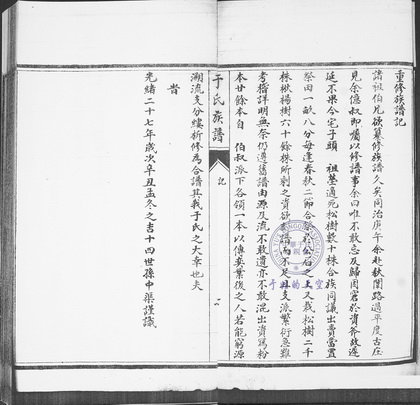 重修族譜記
諸祖伯兄欲纂修族譜久矣同治庚午余赴秋闈路過平度古庄
見余億叔即囑以修譜事余曰唯不敢忘及歸因窘於資斧故遲
延不果今宅子頭 祖塋適死松樹數十株合族同議出賣當置
祭田一畝八分每逢春秋二節合祭於公后之土又栽松樹二千
株楸楊樹六十餘株所剩之資欲修譜而不足且支派繁衍急難
考稽詳明無奈仍遵舊譜由源及流不敢遺亦不敢混出資騰粉
本廿餘本自 伯叔派下各領一本以傳奕葉後之人若能窮源
于氏族譜
記
二
溯流支分縷析修為合譜其我于氏之大幸也夫
旹
光緒二十七年歲次辛丑孟冬之吉十四世孫中藻謹識